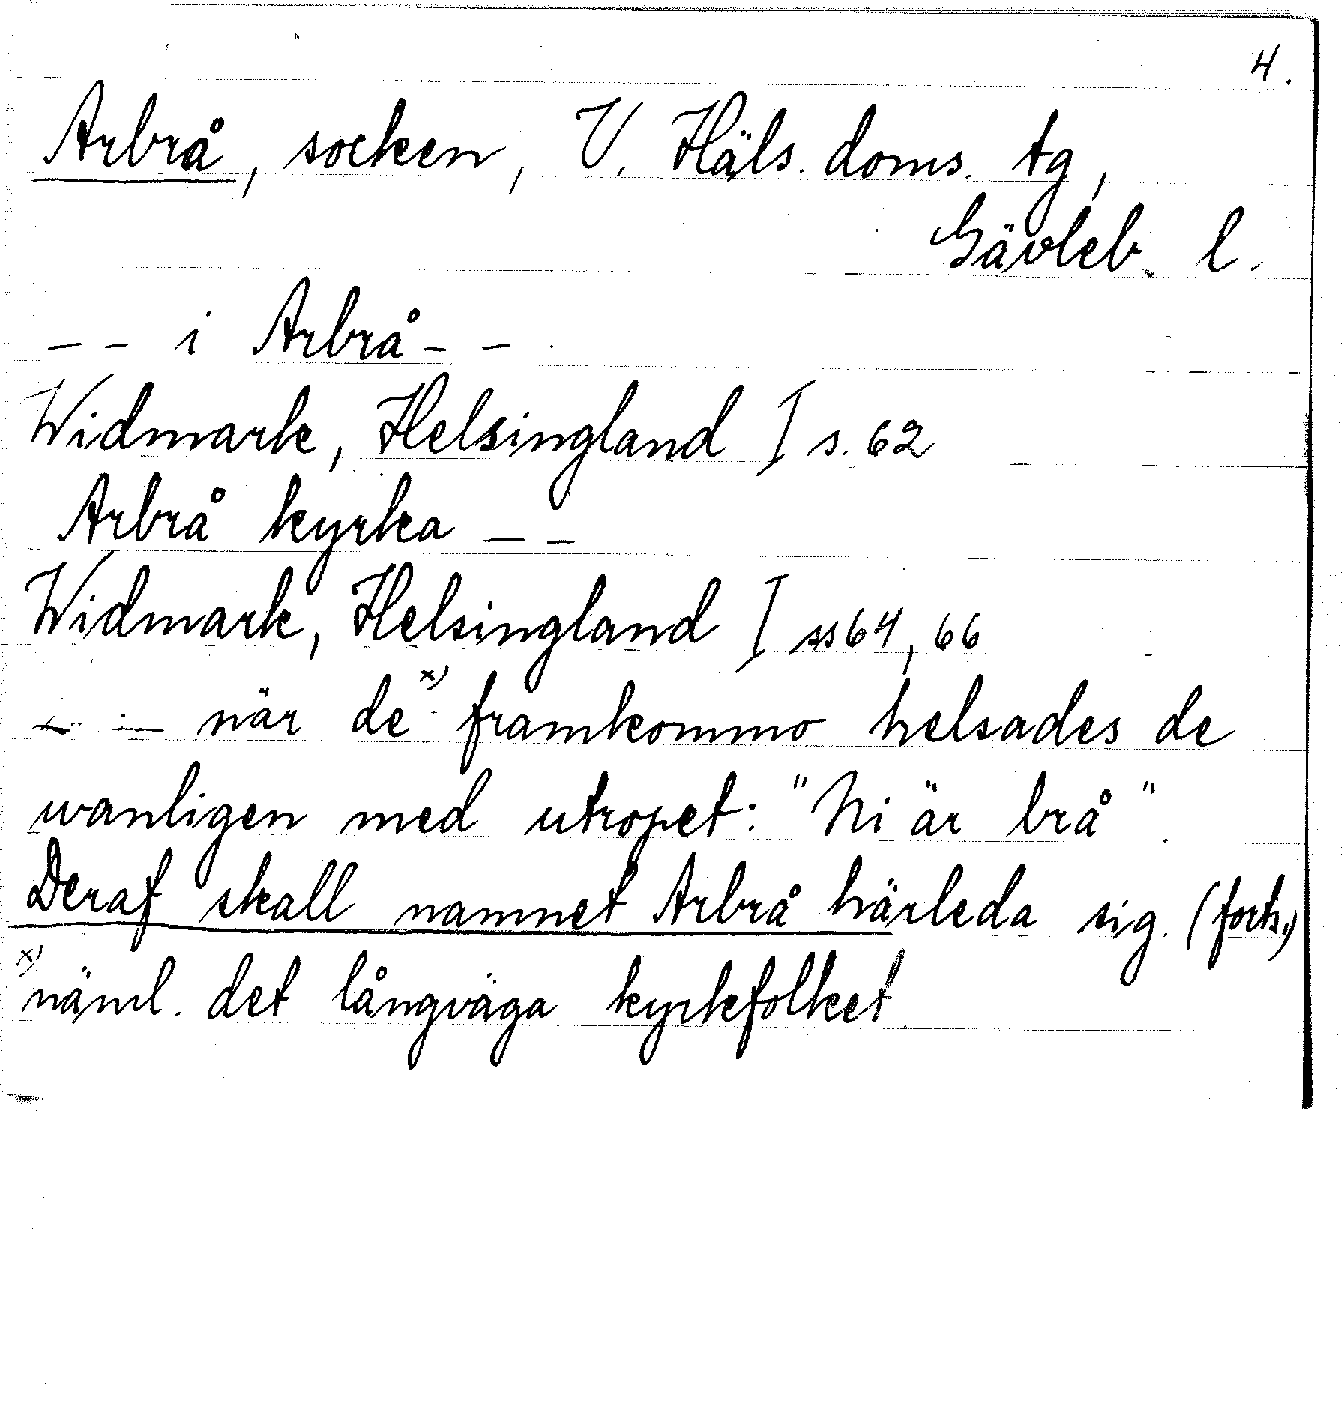 4.
Arbrå, socken, V. Häls. doms. tg,
Gävleb. l.
– – i Arbrå – –
Widmark, Helsingland I s. 62
Arbrå kyrka – –
Widmark, Helsingland I ss 64, 66
– – när de x) framkommo helsades de
wanligen med utropet: "Ni är brå".
Deraf skall namnet Arbrå härleda sig. (forts.)
x) näml. det långväga kyrkfolket